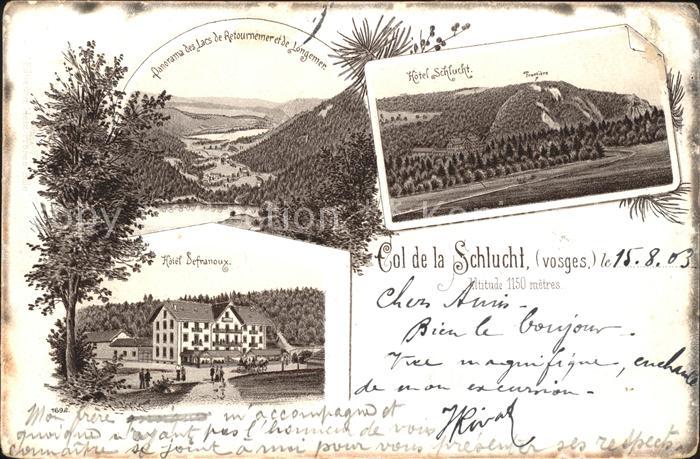 Panorama des Lacs de Retournemer et de Longemer.
Hôtel Schlucht.
Frontière
Hôtel Defranoux.
Col de la Schlucht, (vosges,) le 15.8.03
Altitude 1150 mètres.
Chers Amis -
Bien le bonjour -
Vue magnifique, enchanté
de mon excursion -
JRival
1692.
Mon frère m'accompagne et
quoique n'ayant pas l'honneur de vous
connaître se joint à moi pour vous présenter ses respects